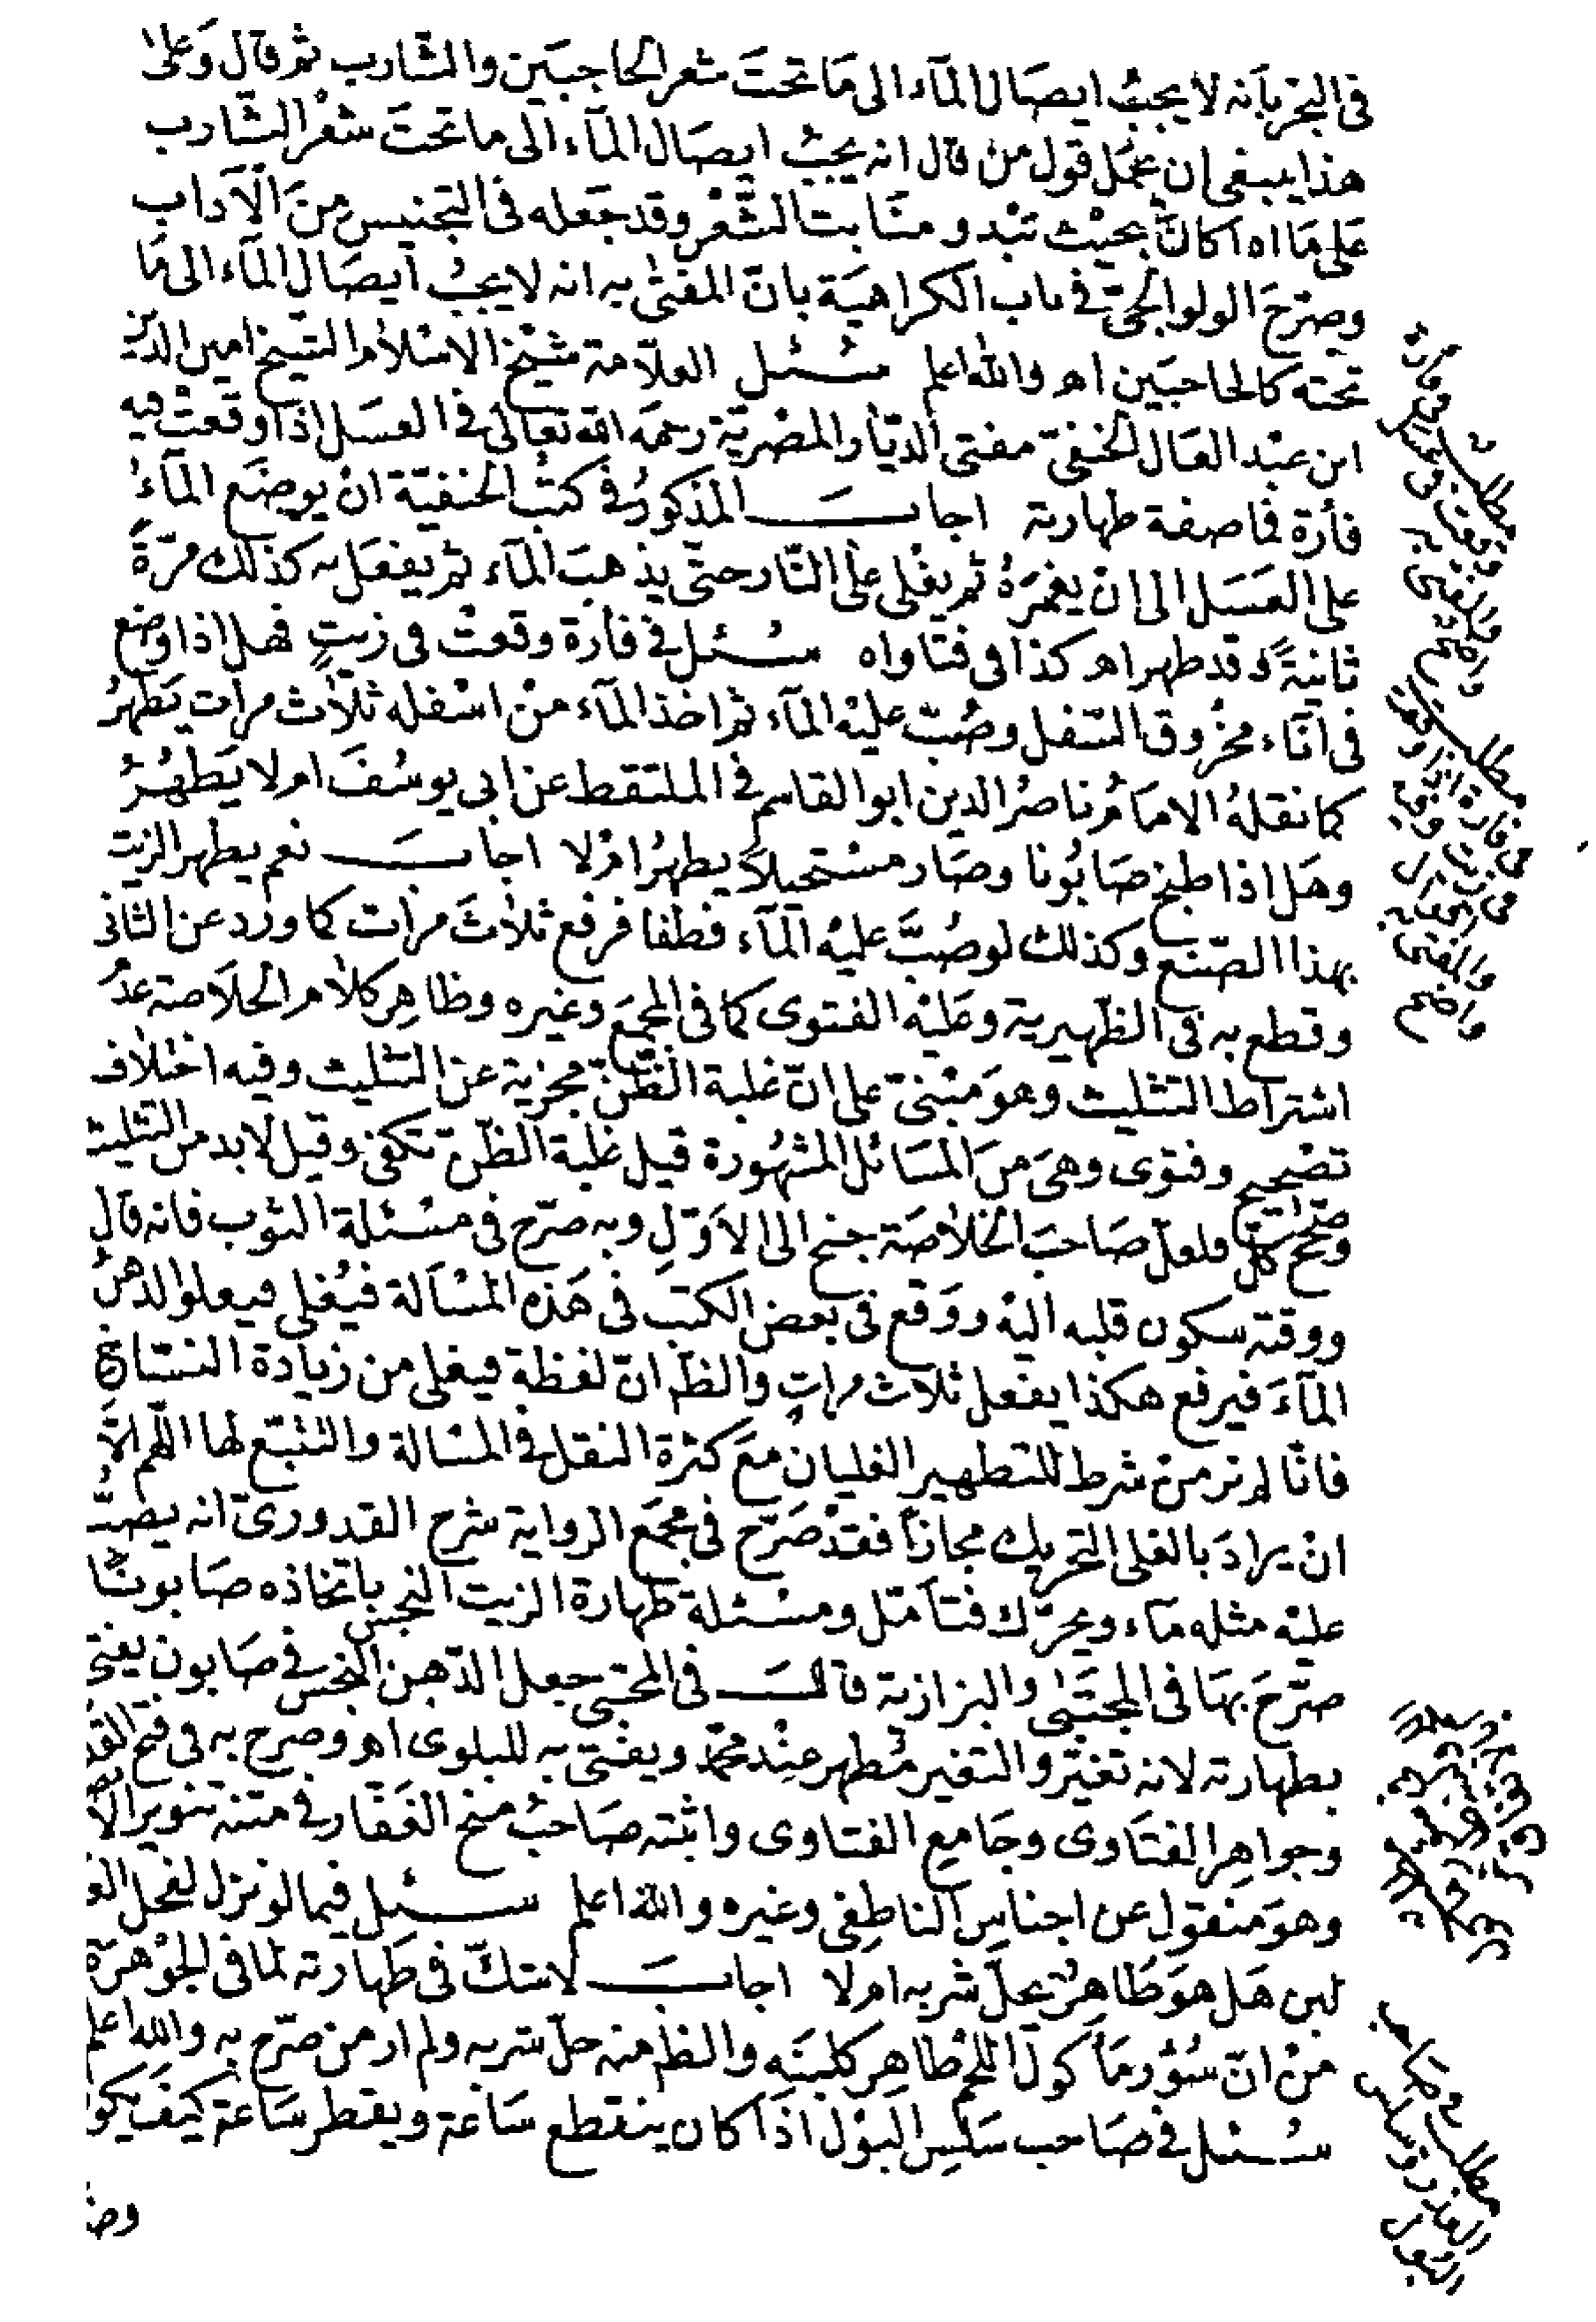 في البحر بأنه لا يجب ايصال المآء الى ما تحت شعر الحاجبين والشارب ثم قال وعلى
هذا ينبغي ان يحمل قول من قال انه يجب ايصال المآء الى ما تحت شعر الشارب
على ما اذا كان بحيث تبدو منابت الشعر وقد جعله في التجنيس من الآداب
وصرح الولوالجي في باب الكراهية بان المفتى به انه لا يجب ايصال المآء الى ما
تحته كالحاجبين اهـ والله اعلم سئل العلامة شيخ الاسلام الشيخ امين الدين
ابن عبد العال الحنفي مفتي الديار المصرية رحمه الله تعالى في العسل اذا وقعت فيه
فأرة فما صفة طهارته اجاب المذكور في كتب الحنفية ان يوضع المآء
على العسل الى ان يغمره ثم يغلى على النار حتى يذهب المآء ثم يفعل به كذلك مرة
ثانية وقد طهر اهـ كذا في فتاواه سئل في فأرة وقعت في زيت فهل اذا وضع
في انآء مخروق السفل وصب عليه المآء ثم اخذ المآء من اسفله ثلاث مرات يطهر
كما نقله الامام ناصر الدين ابو القاسم في الملتقط عن ابي يوسف ام لا يطهر
وهل اذا طبخ صابونا وصار مستحيلا يطهر ام لا اجاب نعم يطهر الزيت
بهذا الصنع وكذلك لو صب عليه المآء فطفا فرفع ثلاث مرات كما ورد عن الثاني
وقطع به في الظهيرية وعليه الفتوى كما في المجمع وغيره وظاهر كلام الخلاصة عدم
اشتراط التثليث وهو مبني على ان غلبة الظن مجزية عن التثليث وفيه اختلاف
تصحيح وفتوى وهي من المسائل المشهورة قيل غلبة الظن تكفي وقيل لا بد من التثليث
وصحح كل فلعل صاحب الخلاصة جنح الى الاول وبه صرح في مسئلة الثوب فانه قال
ووقته سكون قلبه اليه ووقع في بعض الكتب في هذه المسألة فيغلى فيعلو الدهن
المآء فيرفع هكذا يفعل ثلاث مرات والظ ان لفظة فيغلى من زيادة النساخ
فانا لم نر من شرط للتطهير الغليان مع كثرة النقل في المسالة والتتبع لها اللهم الا
ان يراد بالغلي التحريك مجازا فقد صرح في مجمع الرواية شرح القدوري انه يصب
عليه مثله مآء ويحرك فتأمل ومسئلة طهارة الزيت النجس باتخاذه صابونا
صرح بها في المجتبى والبزازية قال في المجتبى جعل الدهن النجس في صابون يفتى
بطهارته لانه تغير والتغير مطهر عند محمد ويفتى به للبلوى اهـ وصرح به في فتح القد
وجواهر الفتاوى وجامع الفتاوى واثبته صاحب منح الغفار في متنه تنوير الا
وهو منقول عن اجناس الناطفي وغيره والله اعلم سئل فيما لو نزل لفحل الغ
لبن هل هو طاهر يحل شربه ام لا اجاب لا شك في طهارته لما في الجوهرة
من ان سؤر مأكول اللحم طاهر كلبنه والظ منه حل شربه ولم ار من صرح به والله اعلم
سئل في صاحب سلس البول اذا كان ينقطع ساعة ويقطر ساعة كيف يكو
مطلب
مطلب
مطلب